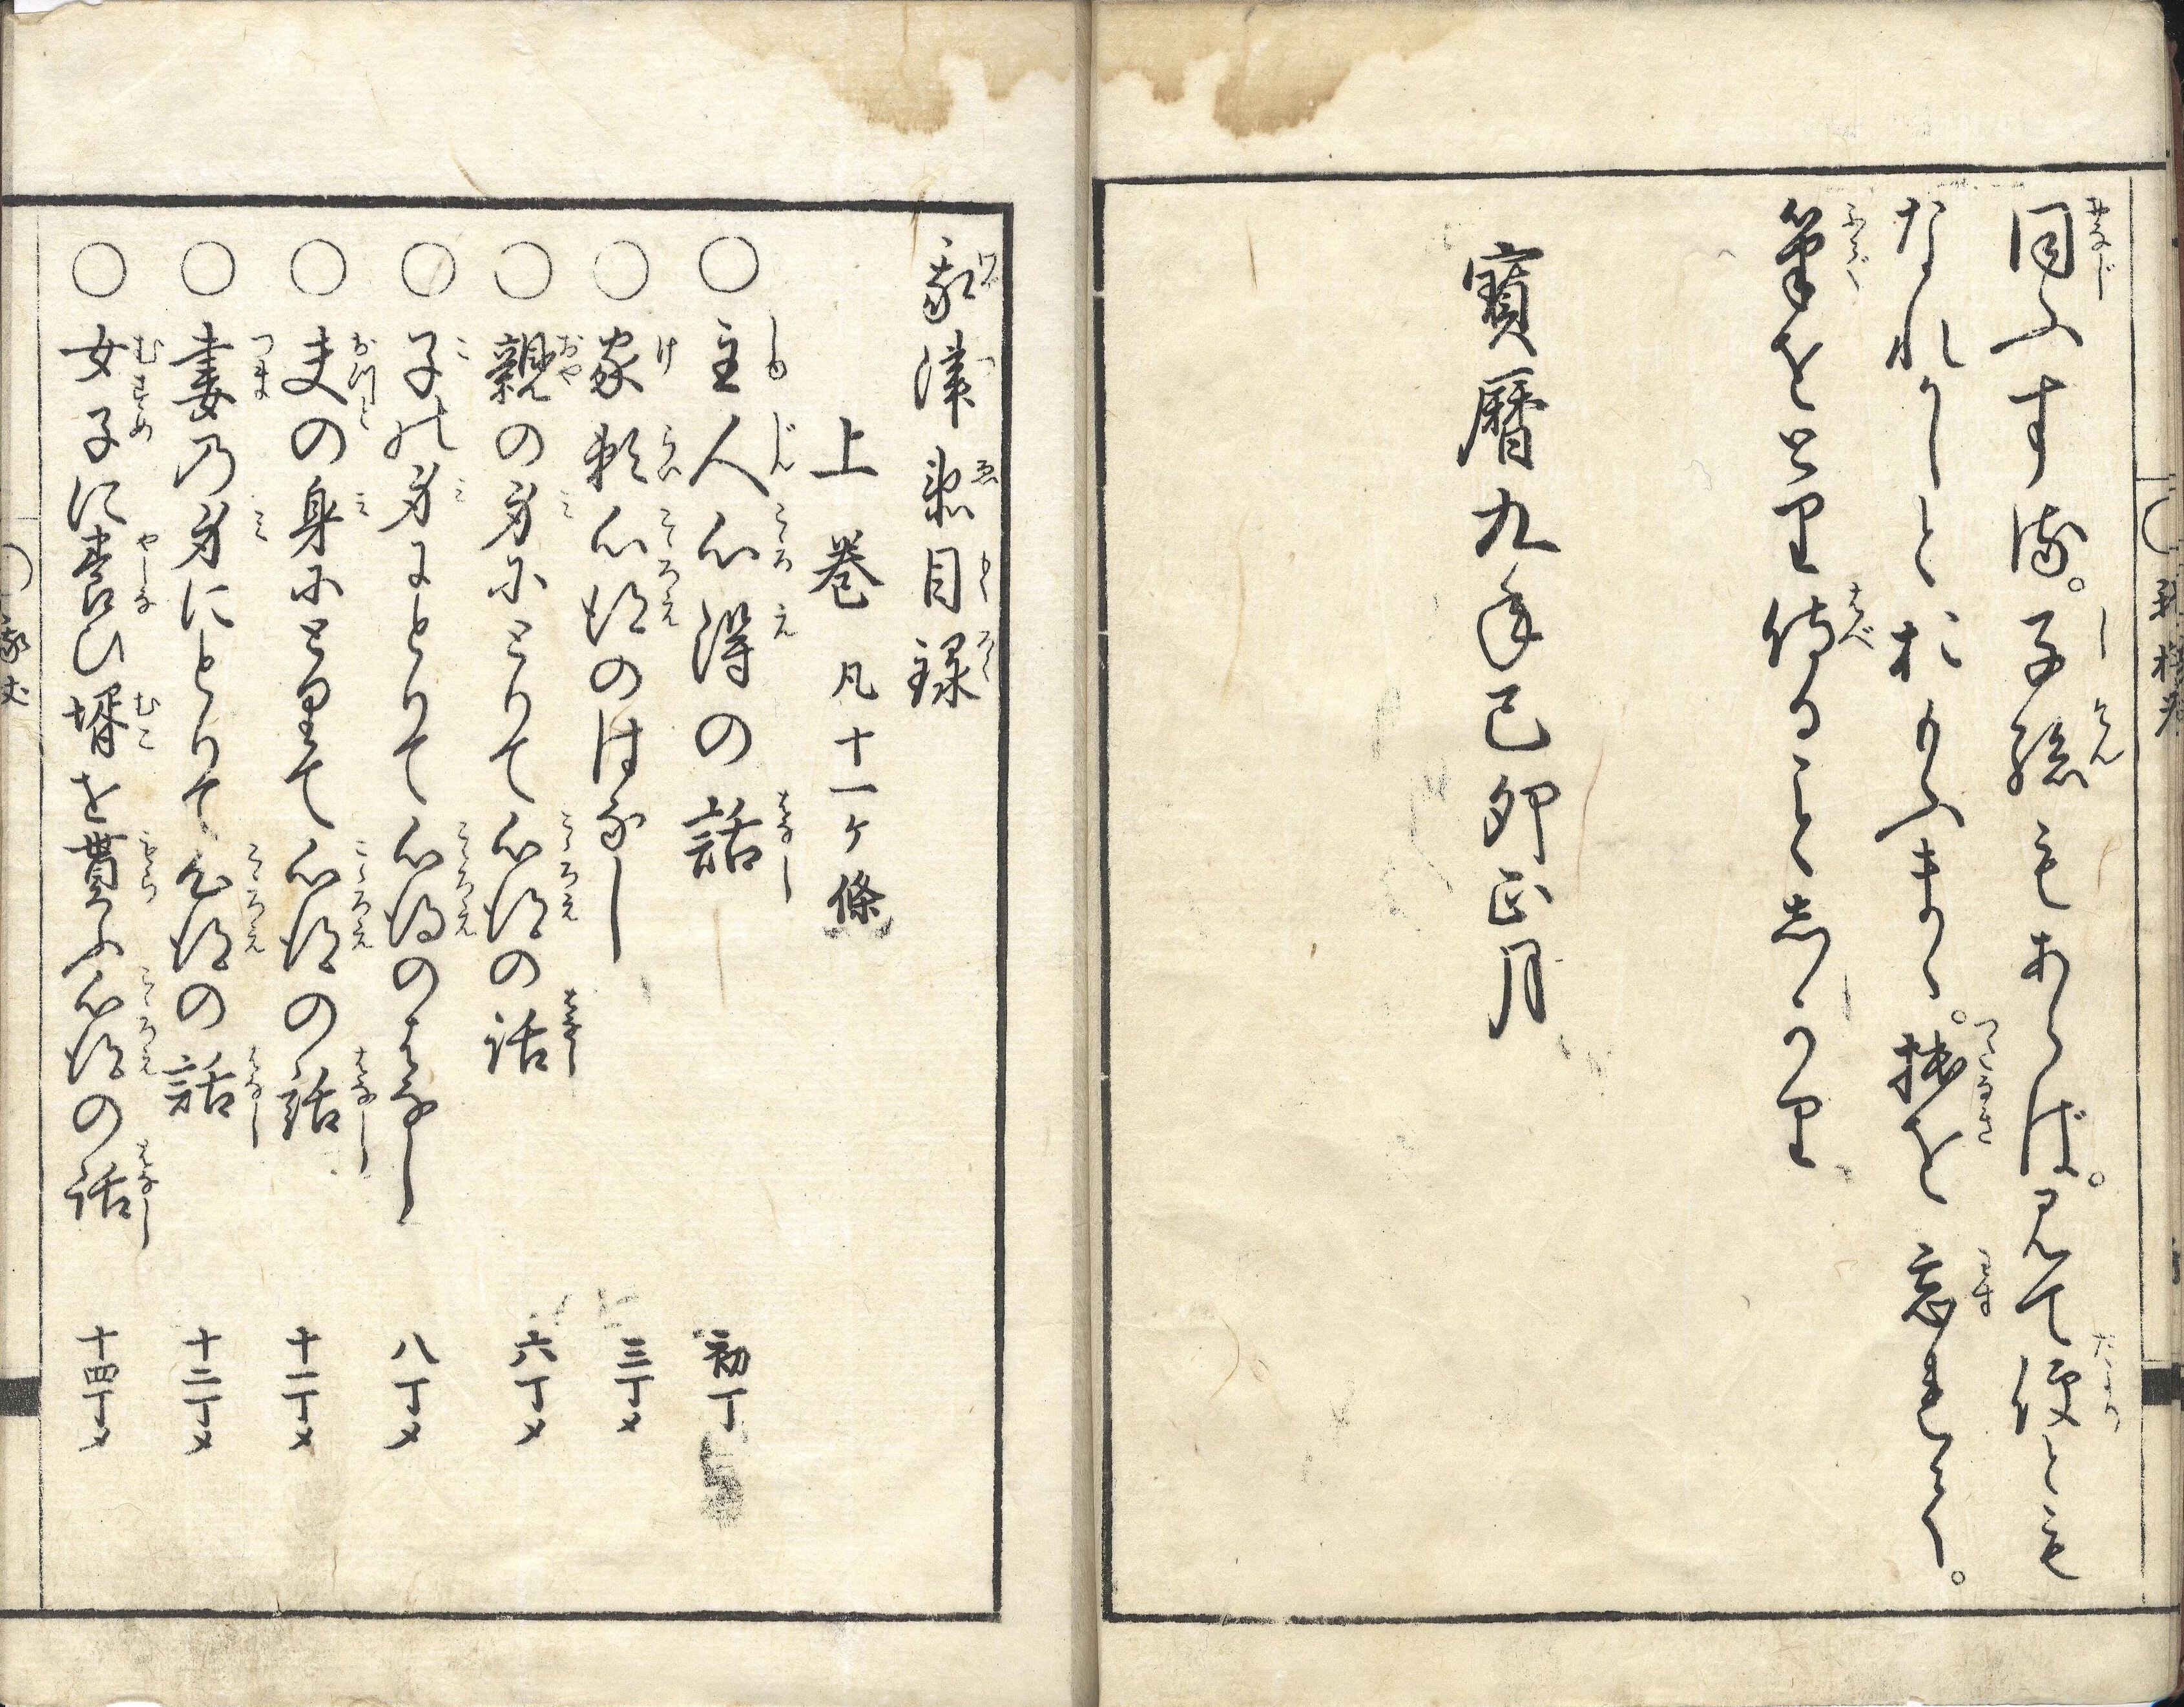 同ふする。子孫もあらば。見て便とも
なれかしとおもふまゝ。拙を忘れて。
筆をとり侍ることしかり
寶暦九年己卯正月
我津惠目録
上巻 凡十一ケ條
○主人心得の話 初丁
○家頼心得のはなし 三丁メ
○親の身にとりて心得の話 六丁メ
○子の身にとりて心得のはなし 八丁メ
○夫の身にとりて心得の話 十一丁メ
○妻乃身にとりて心得の話 十二丁メ
○女子に養ひ壻を貰ふ心得の話 十四丁メ